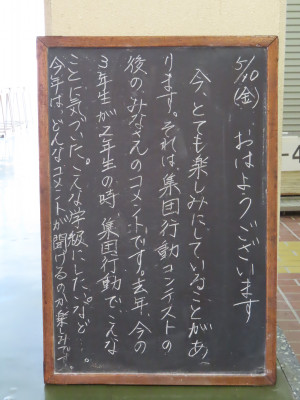 5/10(金) おはようございます
今、とても楽しみにしていることがあ
ります。それは集団行動コンテストの
後の、みなさんのコメントです。去年、今の
3年生が2年生の時、集団行動で、こんな
ことに気づいた。こんな学級にしたい。など…。
今年は、どんなコメントが聞けるのか楽しみです。